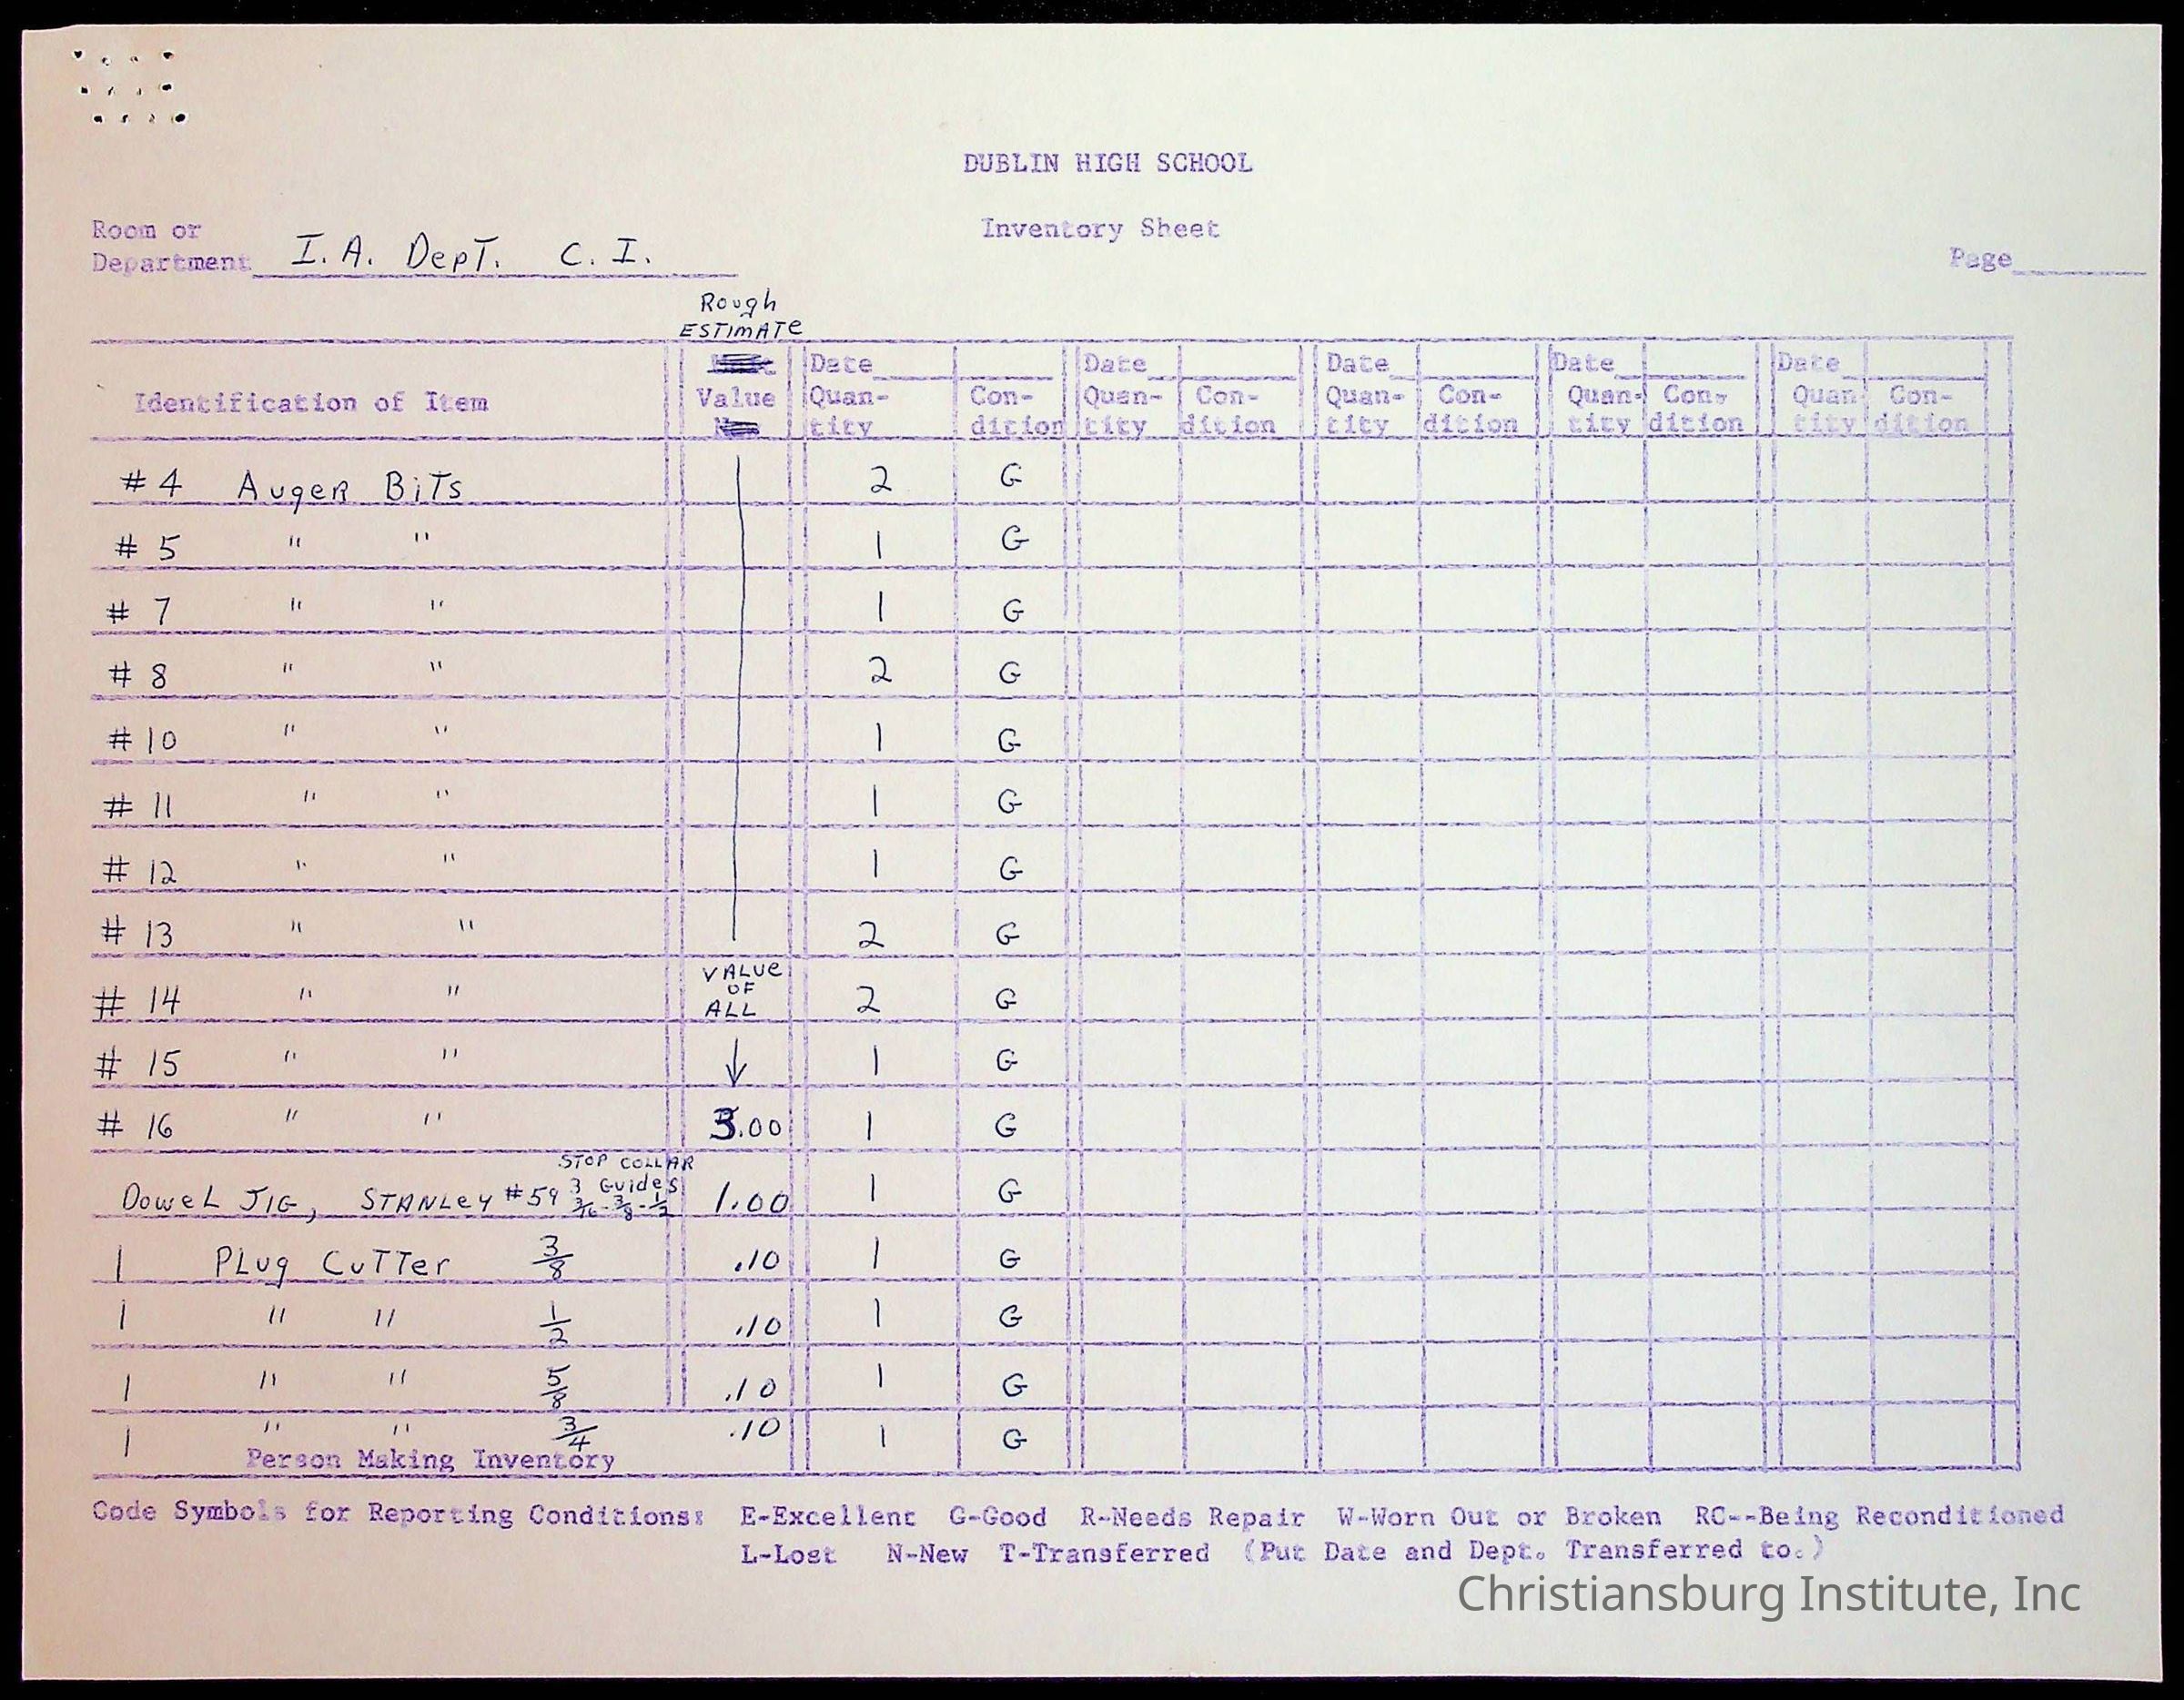 DUBLIN HIGH SCHOOL
Inventory Sheet
Room or
Department I. A. DepT. C. I.
Page
Rough
ESTIMATe
Identification of Item Value Date Quan-tity Con-dition Date Quan-tity Con-dition Date Quan-tity Con-dition Date Quan-tity Con-dition Date Quan-tity Con-dition
#4 Auger BiTs 2 G
# 5 " " 1 G
# 7 " " 1 G
# 8 " " 2 G
# 10 " " 1 G
# 11 " " 1 G
# 12 " " 1 G
# 13 " " 2 G
# 14 " " VALUe OF ALL 2 G
# 15 " " ↓ 1 G
# 16 " " 3.00 1 G
STOP COLLAR
3 Guides
DoweL JIG, STANLey #59 3/16-3/8-1/2 1.00 1 G
1 PLug CuTTer 3/8 .10 1 G
1 " " 1/2 .10 1 G
1 " " 5/8 .10 1 G
1 " " 3/4 .10 1 G
Person Making Inventory
Code Symbols for Reporting Conditions: E-Excellent G-Good R-Needs Repair W-Worn Out or Broken RC--Being Reconditioned
L-Lost N-New T-Transferred (Put Date and Dept. Transferred to.)
Christiansburg Institute, Inc